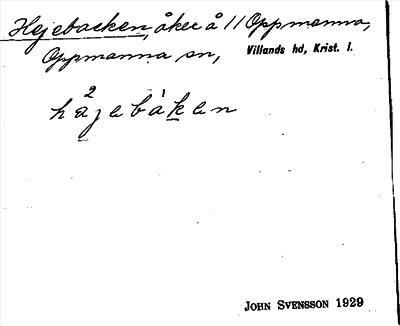 Hejebacken, åker å 11 Oppmanna,
Oppmanna sn, Villands hd, Krist. l.
hajebaken
JOHN SVENSSON 1929